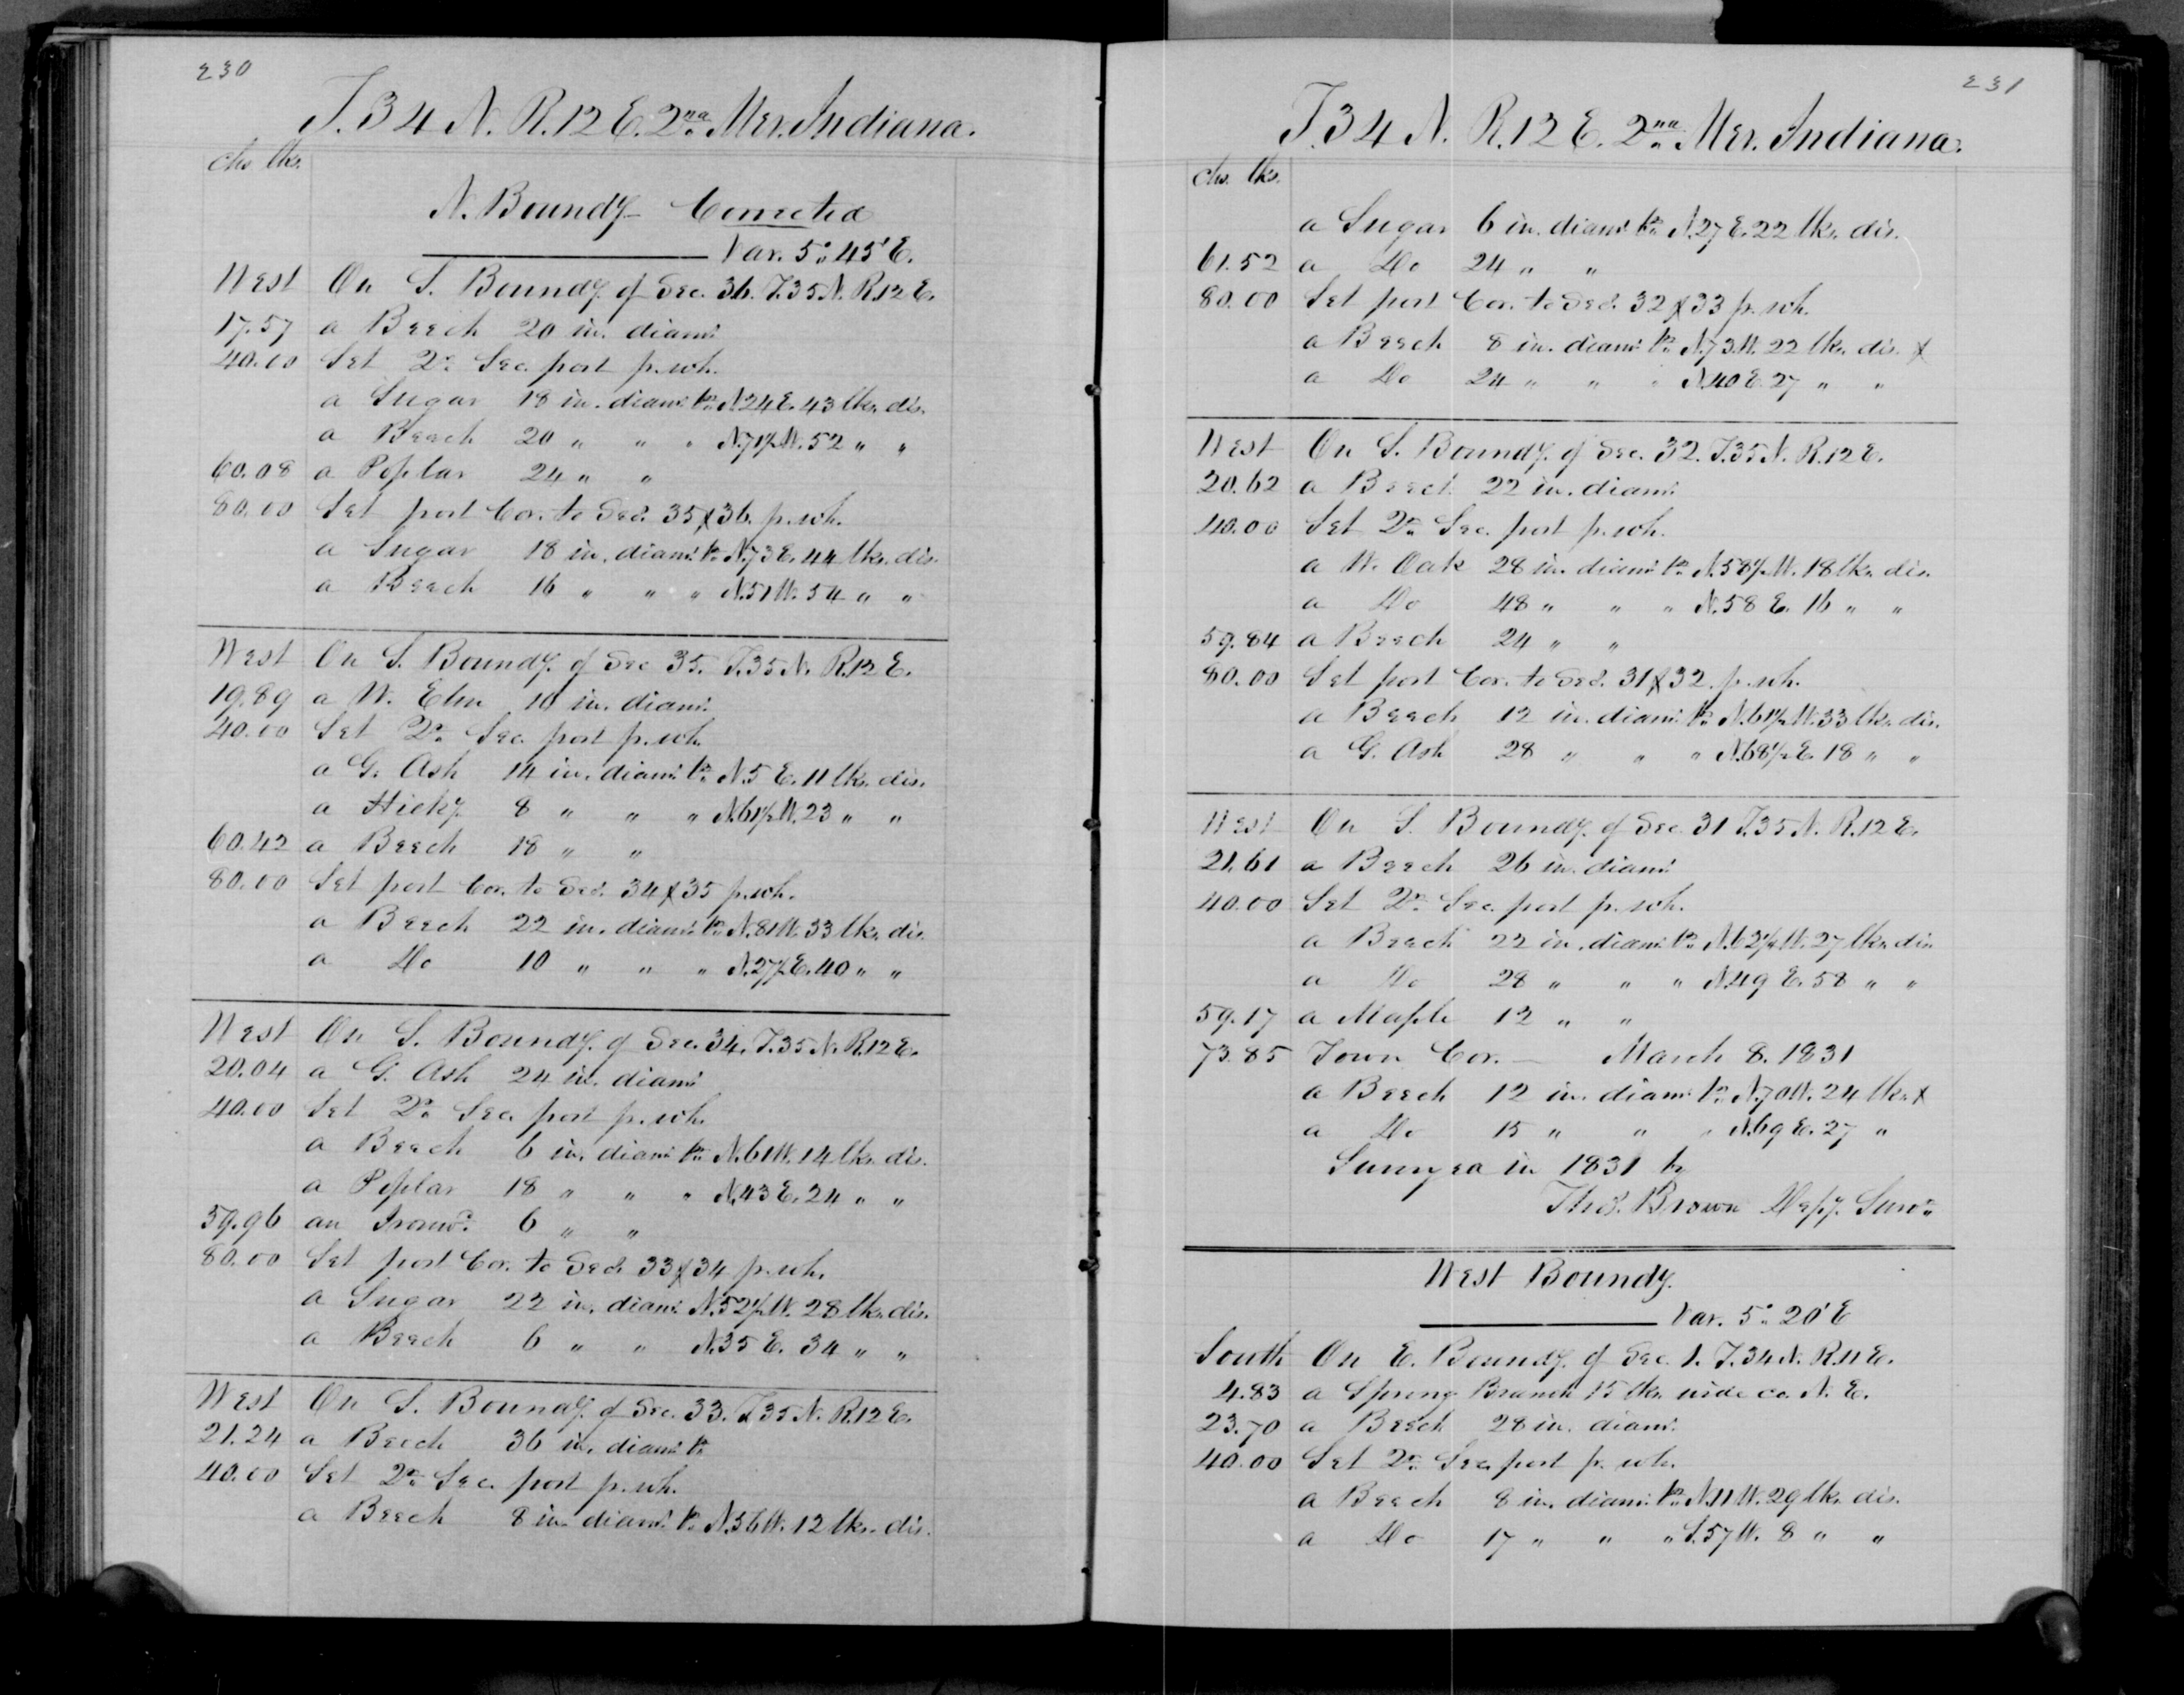 230
T. 34 N. R. 12 E. 2nd Mer. Indiana.
chs lks.
N. Boundy Corrected
Var. 5° 45' E.
West On S. Boundy. of Sec. 36. T. 35 N. R. 12 E.
17.57 a Beech 20 in. diamr.
40.00 Set Qr. Sec. post p. wh.
a Sugar 18 in. diamr. br. N. 24 E. 43 lks. dis.
a Beech 20 " " " N. 71½ W. 52 " "
60.08 a Poplar 24 " "
80.00 Set post Cor. to Secs. 35 & 36. p. wh.
a Sugar 18 in. diamr. br. N. 73 E. 44 lks. dis.
a Beech 16 " " " N. 51 W. 54 " "
West On S. Boundy. of Sec 35. T. 35 N. R. 12 E.
19.89 a W. Elm 10 in. diamr.
40.00 Set Qr. Sec. post p. wh.
a G. Ash 14 in. diamr. br. N. 5 E. 11 lks. dis.
a Hicky. 8 " " " N. 61½ W. 23 " "
60.42 a Beech 18 " "
80.00 Set post Cor. to Secs. 34 & 35 p. wh.
a Beech 22 in. diamr. br. N. 81 W. 33 lks. dis.
a Do 10 " " " N. 27½ E. 40 " "
West On S. Boundy. of Sec. 34. T. 35 N. R. 12 E.
20.04 a G. Ash 24 in. diamr.
40.00 Set Qr. Sec. post p. wh.
a Beech 6 in. diamr. br. N. 61 W. 14 lks. dis.
a Poplar 18 " " " N. 43 E. 24 " "
59.96 an Ironwd. 6 " "
80.00 Set post Cor. to Secs. 33 & 34 p. wh.
a Sugar 22 in. diamr. N. 52½ W. 28 lks. dis.
a Beech 6 " " N. 35 E. 34 " "
West On S. Boundy. of Sec. 33. T. 35 N. R. 12 E.
21.24 a Beech 36 in. diamr. br.
40.00 Set Qr. Sec. post p. wh.
a Beech 8 in. diamr. br. N. 36 W. 12 lks. dis.
231
T. 34 N. R. 12 E. 2nd Mer. Indiana.
chs. lks.
a Sugar 6 in. diamr. br. N. 27 E. 22 lks. dis.
61.52 a Do 24 " "
80.00 Set post Cor. to Secs. 32 & 33 p. wh.
a Beech 8 in. diamr. br. N. 73 W. 22 lks. dis. &
a Do 24 " " " N. 40 E. 27 " "
West On S. Boundy. of Sec. 32. T. 35 N. R. 12 E.
20.62 a Beech 22 in. diamr.
40.00 Set Qr. Sec. post p. wh.
a W. Oak 28 in. diamr. br. N. 58½ W. 18 lks. dis.
a Do 48 " " " N. 58 E. 16 " "
59.84 a Beech 24 " "
80.00 Set post Cor. to Secs. 31 & 32. p. wh.
a Beech 12 in. diamr. br. N. 61½ W. 33 lks. dis.
a G. Ash 28 " " " N. 68½ E. 18 " "
West On S. Boundy. of Sec. 31 T. 35 N. R. 12 E.
21.61 a Beech 26 in. diamr.
40.00 Set Qr. Sec. post p. wh.
a Beech 22 in. diamr. br. N. 62½ W. 27 lks. dis
a Do 28 " " " N. 49 E. 58 " "
59.17 a Maple 12 " "
73.85 Town Cor. — March 8. 1831
a Beech 12 in. diamr. br. N. 70 W. 24 lks. &
a Do 15 " " " N. 69 E. 27 "
Surveyed in 1831 by
Thos. Brown Depy. Survr.
West Boundy.
Var. 5° 20' E
South On E. Boundy. of Sec. 1. T. 34 N. R. 11 E.
4.83 a Spring Branch 15 lks. wide co. N. E.
23.70 a Beech 28 in. diamr.
40.00 Set Qr. Sec. post p. wh.
a Beech 8 in. diamr. br. N. 11 W. 29 lks. dis.
a Do 17 " " " S. 57 W. 8 " "